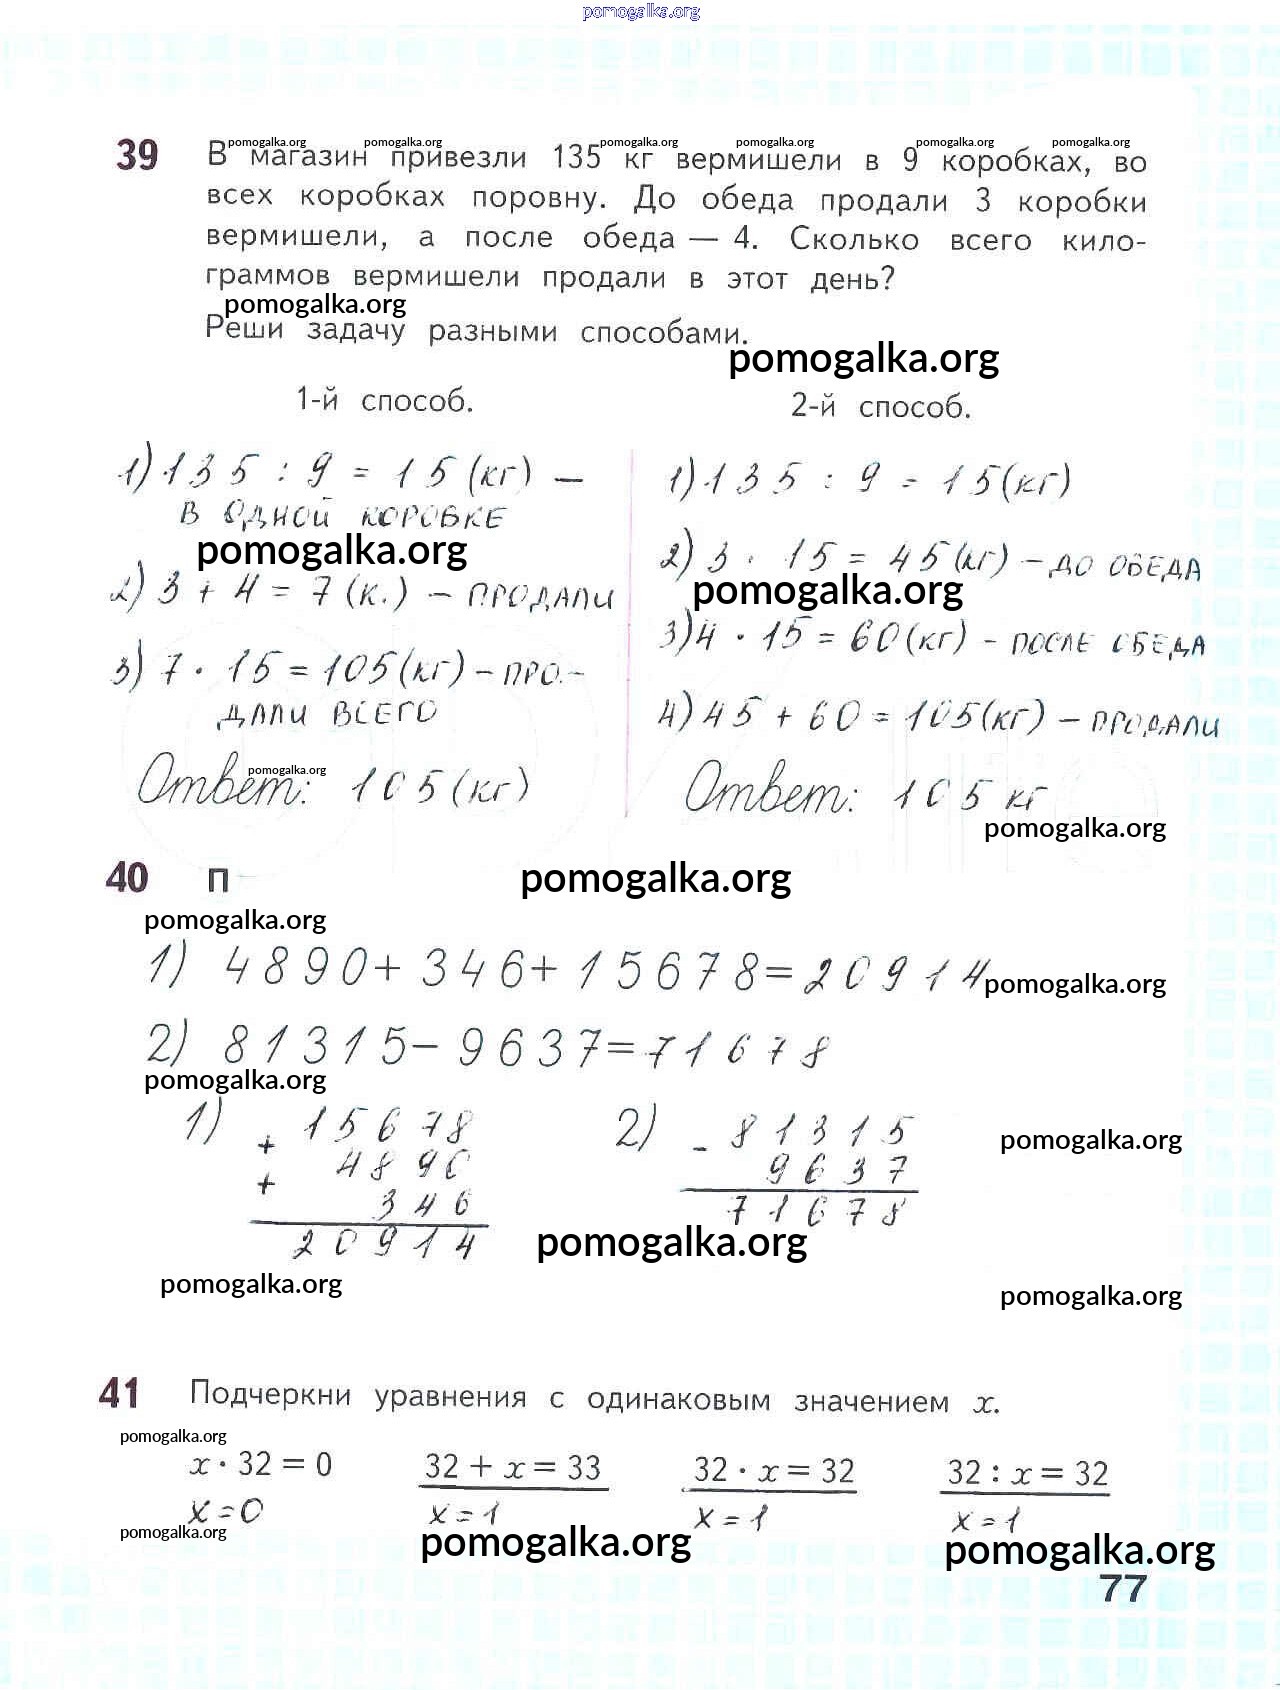 pomogalka.org
pomogalka.org pomogalka.org pomogalka.org pomogalka.org pomogalka.org pomogalka.org
39 В магазин привезли 135 кг вермишели в 9 коробках, во
всех коробках поровну. До обеда продали 3 коробки
вермишели, а после обеда — 4. Сколько всего кило-
граммов вермишели продали в этот день?
pomogalka.org
Реши задачу разными способами.
pomogalka.org
1-й способ.
1) 135 : 9 = 15 (кг) —
В ОДНОЙ КОРОБКЕ
pomogalka.org
2) 3 + 4 = 7 (к.) — ПРОДАЛИ
3) 7 · 15 = 105 (кг) — ПРО-
ДАЛИ ВСЕГО
Ответ: 105 (кг)
pomogalka.org
2-й способ.
1) 135 : 9 = 15 (кг)
2) 3 · 15 = 45 (кг) — ДО ОБЕДА
pomogalka.org
3) 4 · 15 = 60 (кг) — ПОСЛЕ ОБЕДА
4) 45 + 60 = 105 (кг) — ПРОДАЛИ
Ответ: 105 кг
pomogalka.org
40 П
pomogalka.org
pomogalka.org
1) 4890 + 346 + 15678 = 20914
pomogalka.org
2) 81315 − 9637 = 71678
pomogalka.org
1) + 15678
4890
+
346
20914
2) - 81315
9637
71678
pomogalka.org
pomogalka.org
pomogalka.org
pomogalka.org
41 Подчеркни уравнения с одинаковым значением x.
pomogalka.org
x · 32 = 0 32 + x = 33 32 · x = 32 32 : x = 32
x = 0 x = 1 x = 1 x = 1
pomogalka.org pomogalka.org pomogalka.org
77